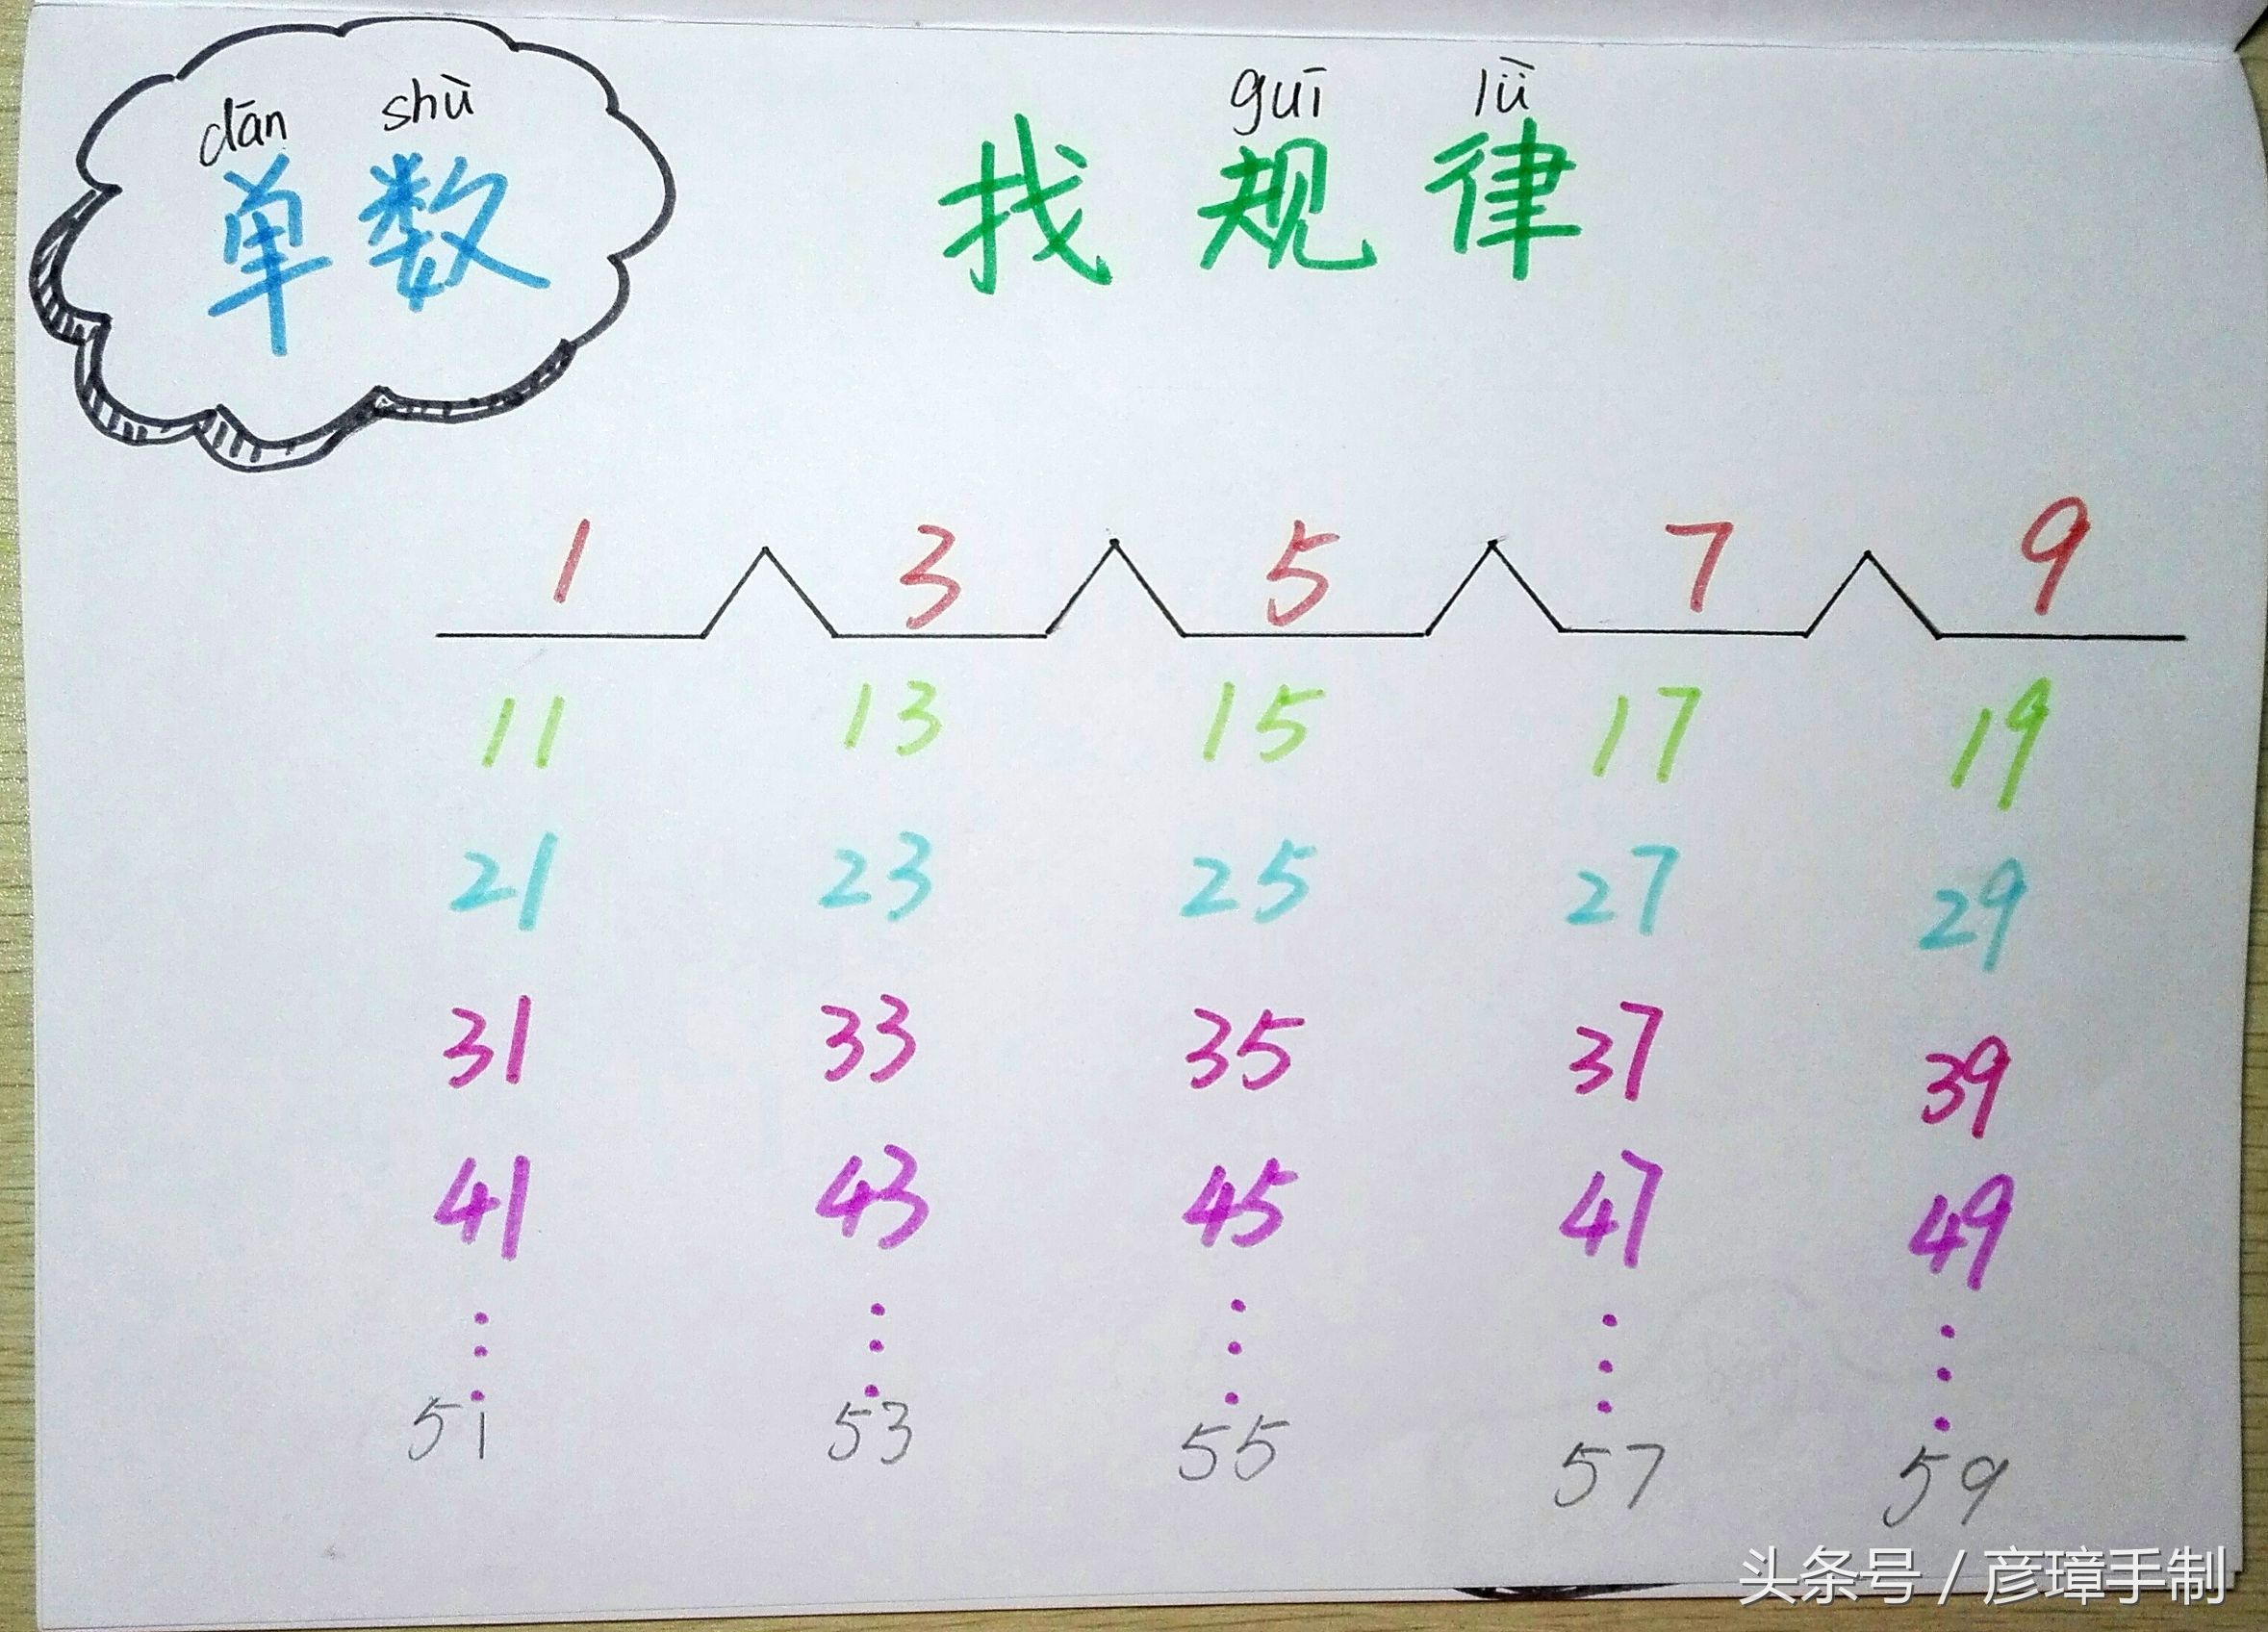 dān shù
单数
guī lǜ
找规律
1 3 5 7 9
11 13 15 17 19
21 23 25 27 29
31 33 35 37 39
41 43 45 47 49
51 53 55 57 59
头条号 / 彦璋手制